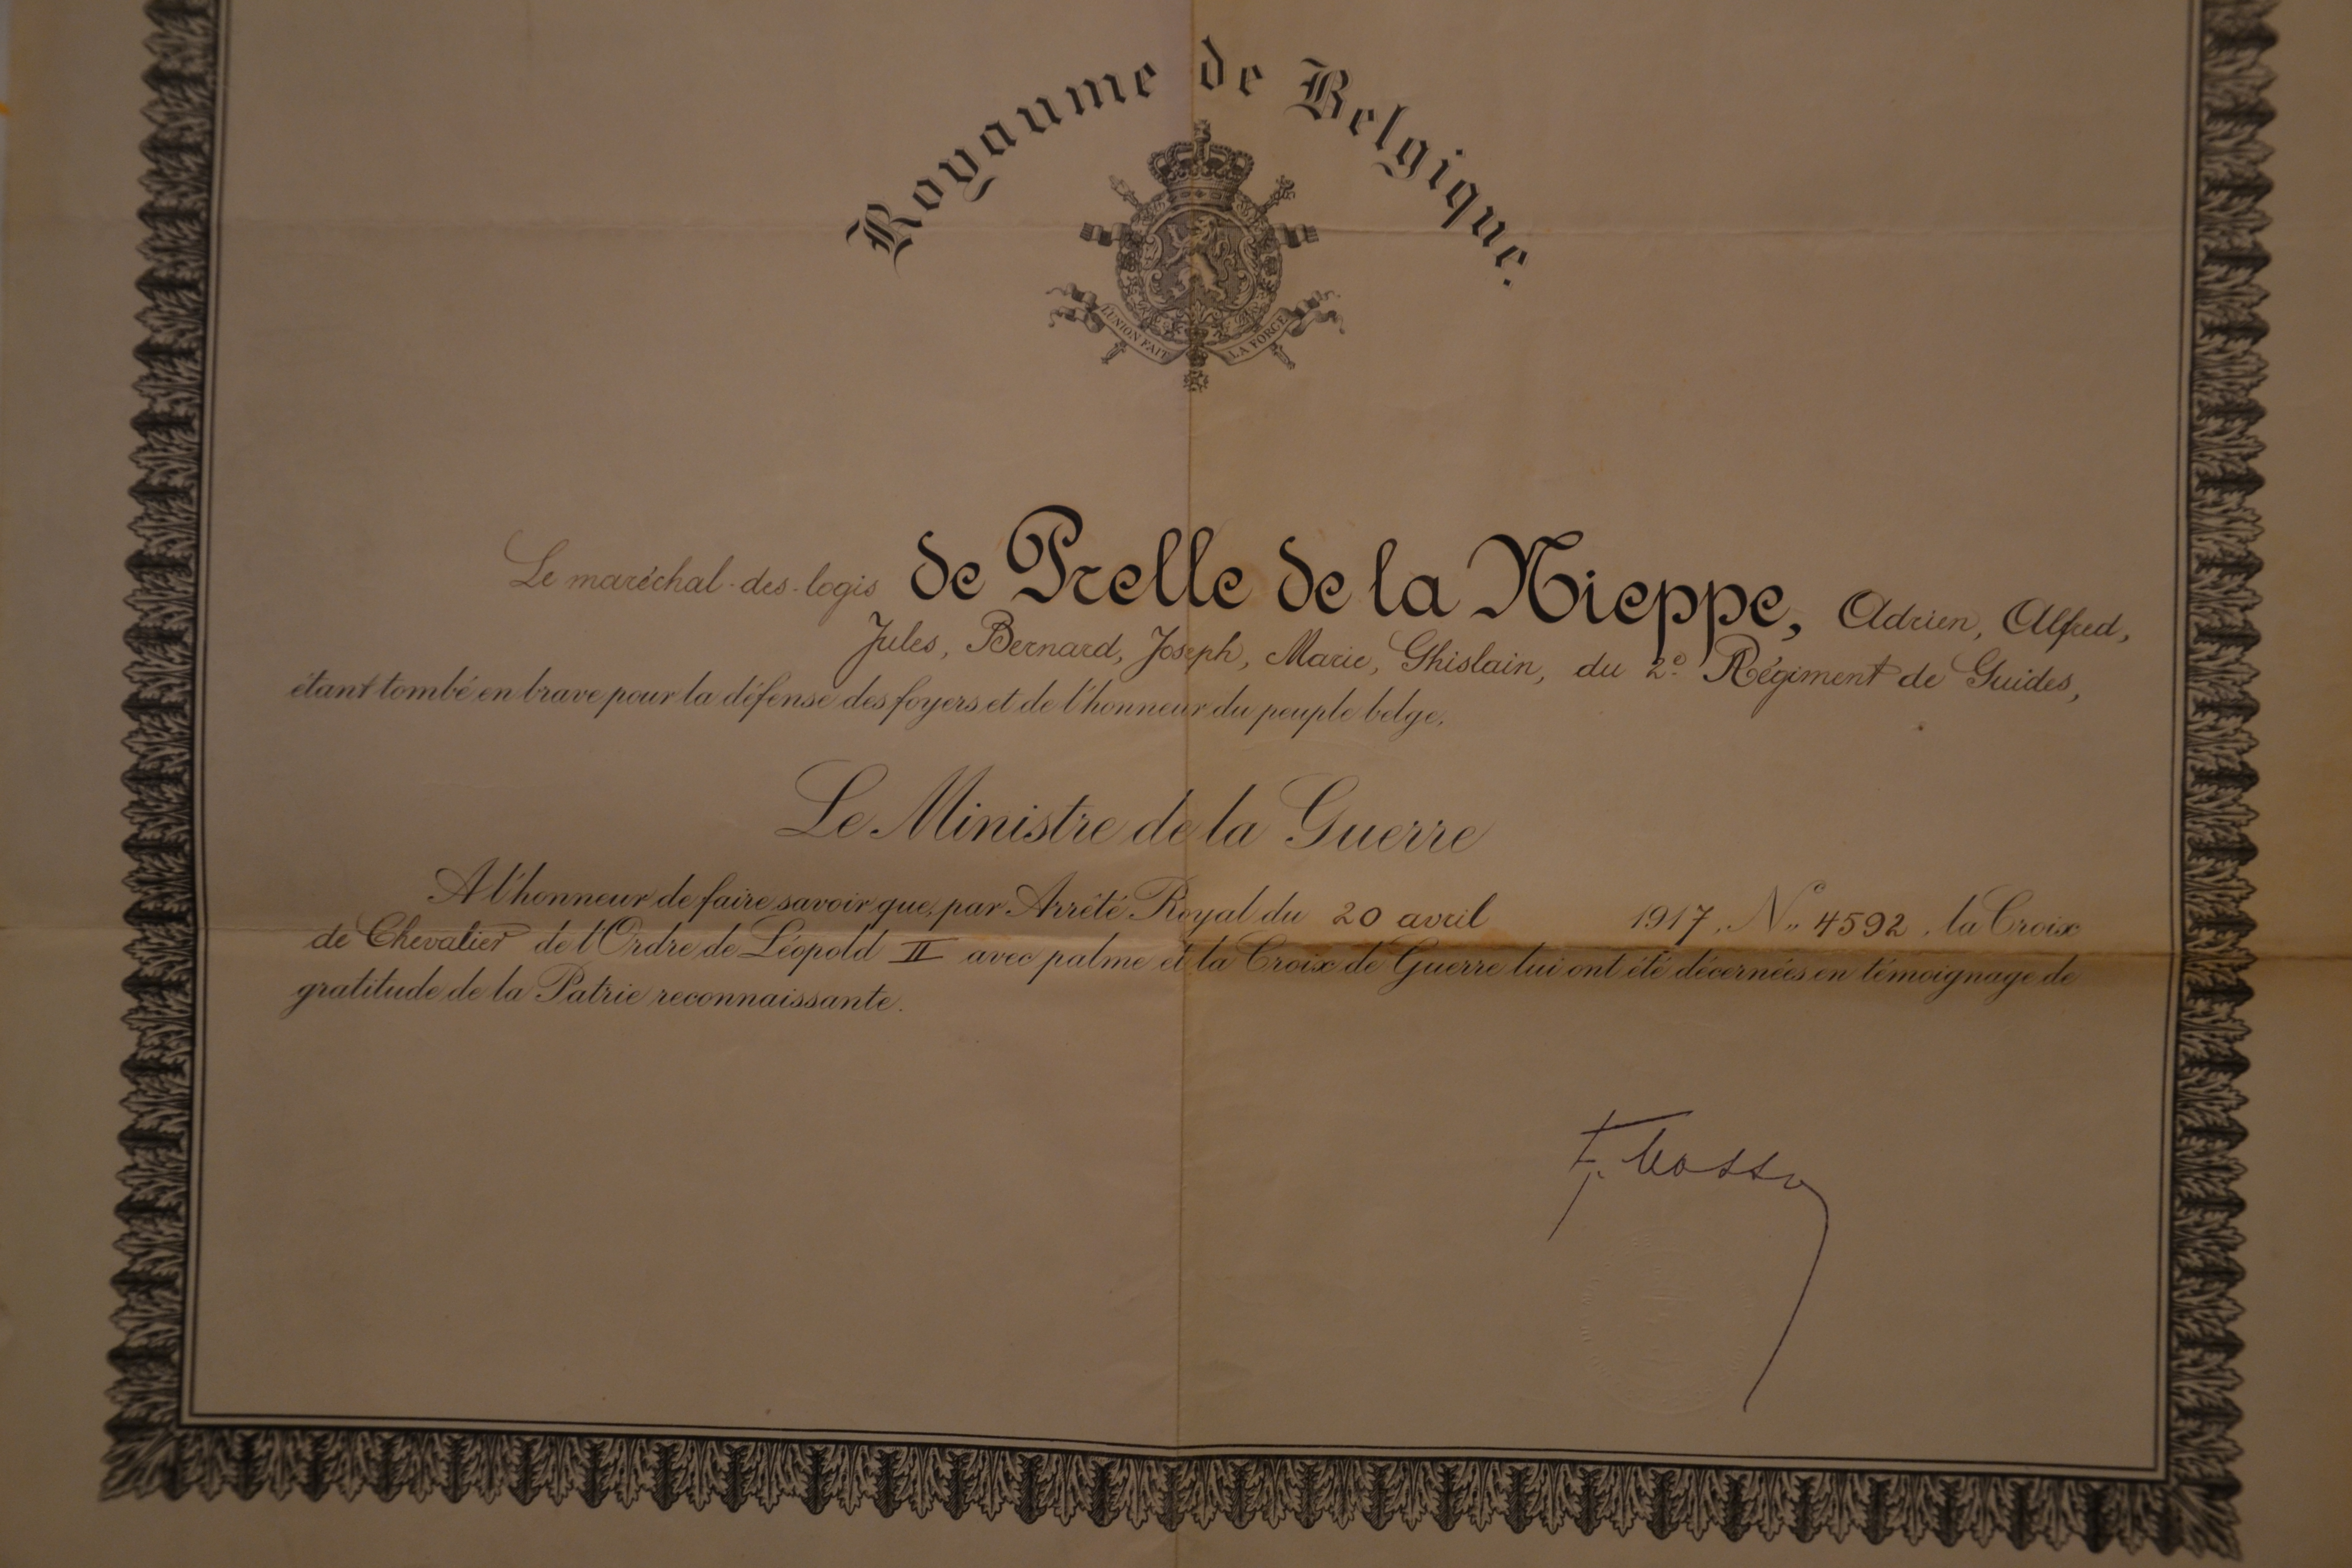 Royaume de Belgique.
L'UNION FAIT LA FORCE
Le maréchal-des-logis de Prelle de la Nieppe, Adrien, Alfred,
Jules, Bernard, Joseph, Marie, Ghislain, du 2e Régiment de Guides,
étant tombé en brave pour la défense des foyers et de l'honneur du peuple belge,
Le Ministre de la Guerre
A l'honneur de faire savoir que, par Arrêté Royal du 20 avril 1917, No 4592, la Croix
de Chevalier de l'Ordre de Léopold II avec palme et la Croix de Guerre lui ont été décernées en témoignage de
gratitude de la Patrie reconnaissante.